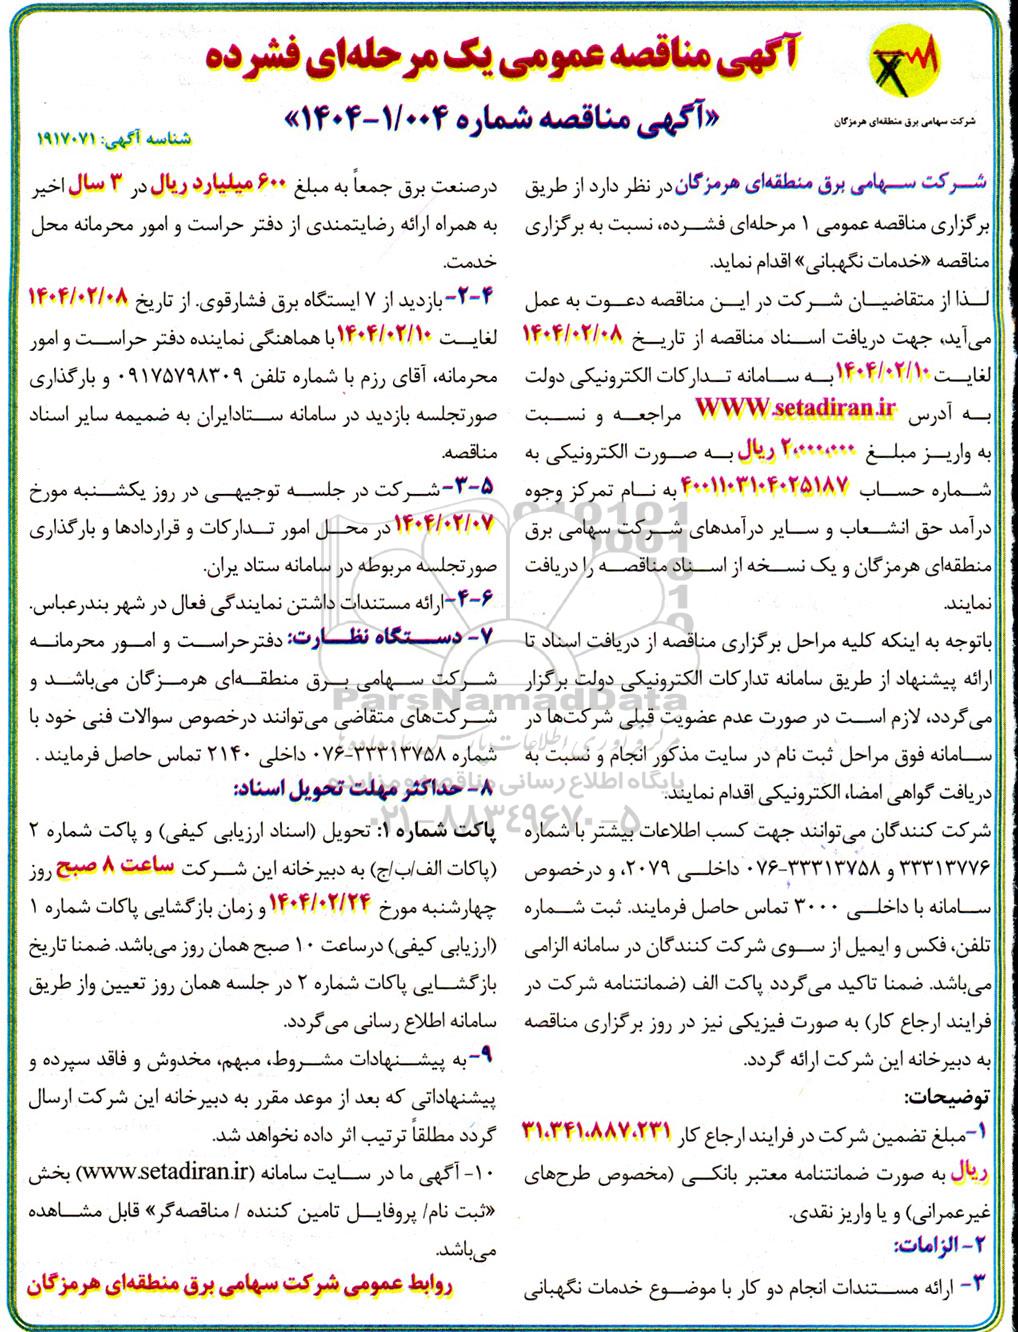 آگهی مناقصه عمومی یک مرحله‌ای فشرده
«آگهی مناقصه شماره ۱۴۰۴-۱/۰۰۴»
شرکت سهامی برق منطقه‌ای هرمزگان
شناسه آگهی: ۱۹۱۷۰۷۱
شرکت سهامی برق منطقه‌ای هرمزگان در نظر دارد از طریق
برگزاری مناقصه عمومی ۱ مرحله‌ای فشرده، نسبت به برگزاری
مناقصه «خدمات نگهبانی» اقدام نماید.
لذا از متقاضیان شرکت در این مناقصه دعوت به عمل
می‌آید، جهت دریافت اسناد مناقصه از تاریخ ۱۴۰۴/۰۲/۰۸
لغایت ۱۴۰۴/۰۲/۱۰ به سامانه تدارکات الکترونیکی دولت
به آدرس WWW.setadiran.ir مراجعه و نسبت
به واریز مبلغ ۲،۰۰۰،۰۰۰ ریال به صورت الکترونیکی به
شماره حساب ۴۰۰۱۱۰۳۱۰۴۰۲۵۱۸۷ به نام تمرکز وجوه
درآمد حق انشعاب و سایر درآمدهای شرکت سهامی برق
منطقه‌ای هرمزگان و یک نسخه از اسناد مناقصه را دریافت
نمایند.
باتوجه به اینکه کلیه مراحل برگزاری مناقصه از دریافت اسناد تا
ارائه پیشنهاد از طریق سامانه تدارکات الکترونیکی دولت برگزار
می‌گردد، لازم است در صورت عدم عضویت قبلی شرکت‌ها در
سامانه فوق مراحل ثبت نام در سایت مذکور انجام و نسبت به
دریافت گواهی امضا، الکترونیکی اقدام نمایند.
شرکت کنندگان می‌توانند جهت کسب اطلاعات بیشتر با شماره
۳۳۳۱۳۷۷۶ و ۳۳۳۱۳۷۵۸-۰۷۶ داخلی ۲۰۷۹، و درخصوص
سامانه با داخلی ۳۰۰۰ تماس حاصل فرمایند. ثبت شماره
تلفن، فکس و ایمیل از سوی شرکت کنندگان در سامانه الزامی
می‌باشد. ضمنا تاکید می‌گردد پاکت الف (ضمانتنامه شرکت در
فرایند ارجاع کار) به صورت فیزیکی نیز در روز برگزاری مناقصه
به دبیرخانه این شرکت ارائه گردد.
توضیحات:
۱-مبلغ تضمین شرکت در فرایند ارجاع کار ۳۱،۳۴۱،۸۸۷،۲۳۱
ریال به صورت ضمانتنامه معتبر بانکی (مخصوص طرح‌های
غیرعمرانی) و یا واریز نقدی.
۲- الزامات:
۳- ارائه مستندات انجام دو کار با موضوع خدمات نگهبانی
درصنعت برق جمعاً به مبلغ ۶۰۰ میلیارد ریال در ۳ سال اخیر
به همراه ارائه رضایتمندی از دفتر حراست و امور محرمانه محل
خدمت.
۲-۴- بازدید از ۷ ایستگاه برق فشارقوی. از تاریخ ۱۴۰۴/۰۲/۰۸
لغایت ۱۴۰۴/۰۲/۱۰ با هماهنگی نماینده دفتر حراست و امور
محرمانه، آقای رزم با شماره تلفن ۰۹۱۷۵۷۹۸۳۰۹ و بارگذاری
صورتجلسه بازدید در سامانه ستادایران به ضمیمه سایر اسناد
مناقصه.
۳-۵- شرکت در جلسه توجیهی در روز یکشنبه مورخ
۱۴۰۴/۰۲/۰۷ در محل امور تدارکات و قراردادها و بارگذاری
صورتجلسه مربوطه در سامانه ستاد یران.
۴-۶- ارائه مستندات داشتن نمایندگی فعال در شهر بندرعباس.
۷- دستگاه نظارت: دفترحراست و امور محرمانه
شرکت سهامی برق منطقه‌ای هرمزگان می‌باشد و
شرکت‌های متقاضی می‌توانند درخصوص سوالات فنی خود با
شماره ۳۳۳۱۳۷۵۸-۰۷۶ داخلی ۲۱۴۰ تماس حاصل فرمایند .
۸- حداکثر مهلت تحویل اسناد:
پاکت شماره ۱: تحویل (اسناد ارزیابی کیفی) و پاکت شماره ۲
(پاکات الف/ب/ج) به دبیرخانه این شرکت ساعت ۸ صبح روز
چهارشنبه مورخ ۱۴۰۴/۰۲/۲۴ و زمان بازگشایی پاکات شماره ۱
(ارزیابی کیفی) درساعت ۱۰ صبح همان روز می‌باشد. ضمنا تاریخ
بازگشایی پاکات شماره ۲ در جلسه همان روز تعیین واز طریق
سامانه اطلاع رسانی می‌گردد.
۹- به پیشنهادات مشروط، مبهم، مخدوش و فاقد سپرده و
پیشنهاداتی که بعد از موعد مقرر به دبیرخانه این شرکت ارسال
گردد مطلقاً ترتیب اثر داده نخواهد شد.
۱۰- آگهی ما در سایت سامانه (www.setadiran.ir) بخش
«ثبت نام/ پروفایل تامین کننده / مناقصه‌گر» قابل مشاهده
می‌باشد.
روابط عمومی شرکت سهامی برق منطقه‌ای هرمزگان
ParsNamadData
پایگاه اطلاع رسانی مناقصه و مزایده
۰۲۱-۸۸۳۴۹۶۷۰-۵